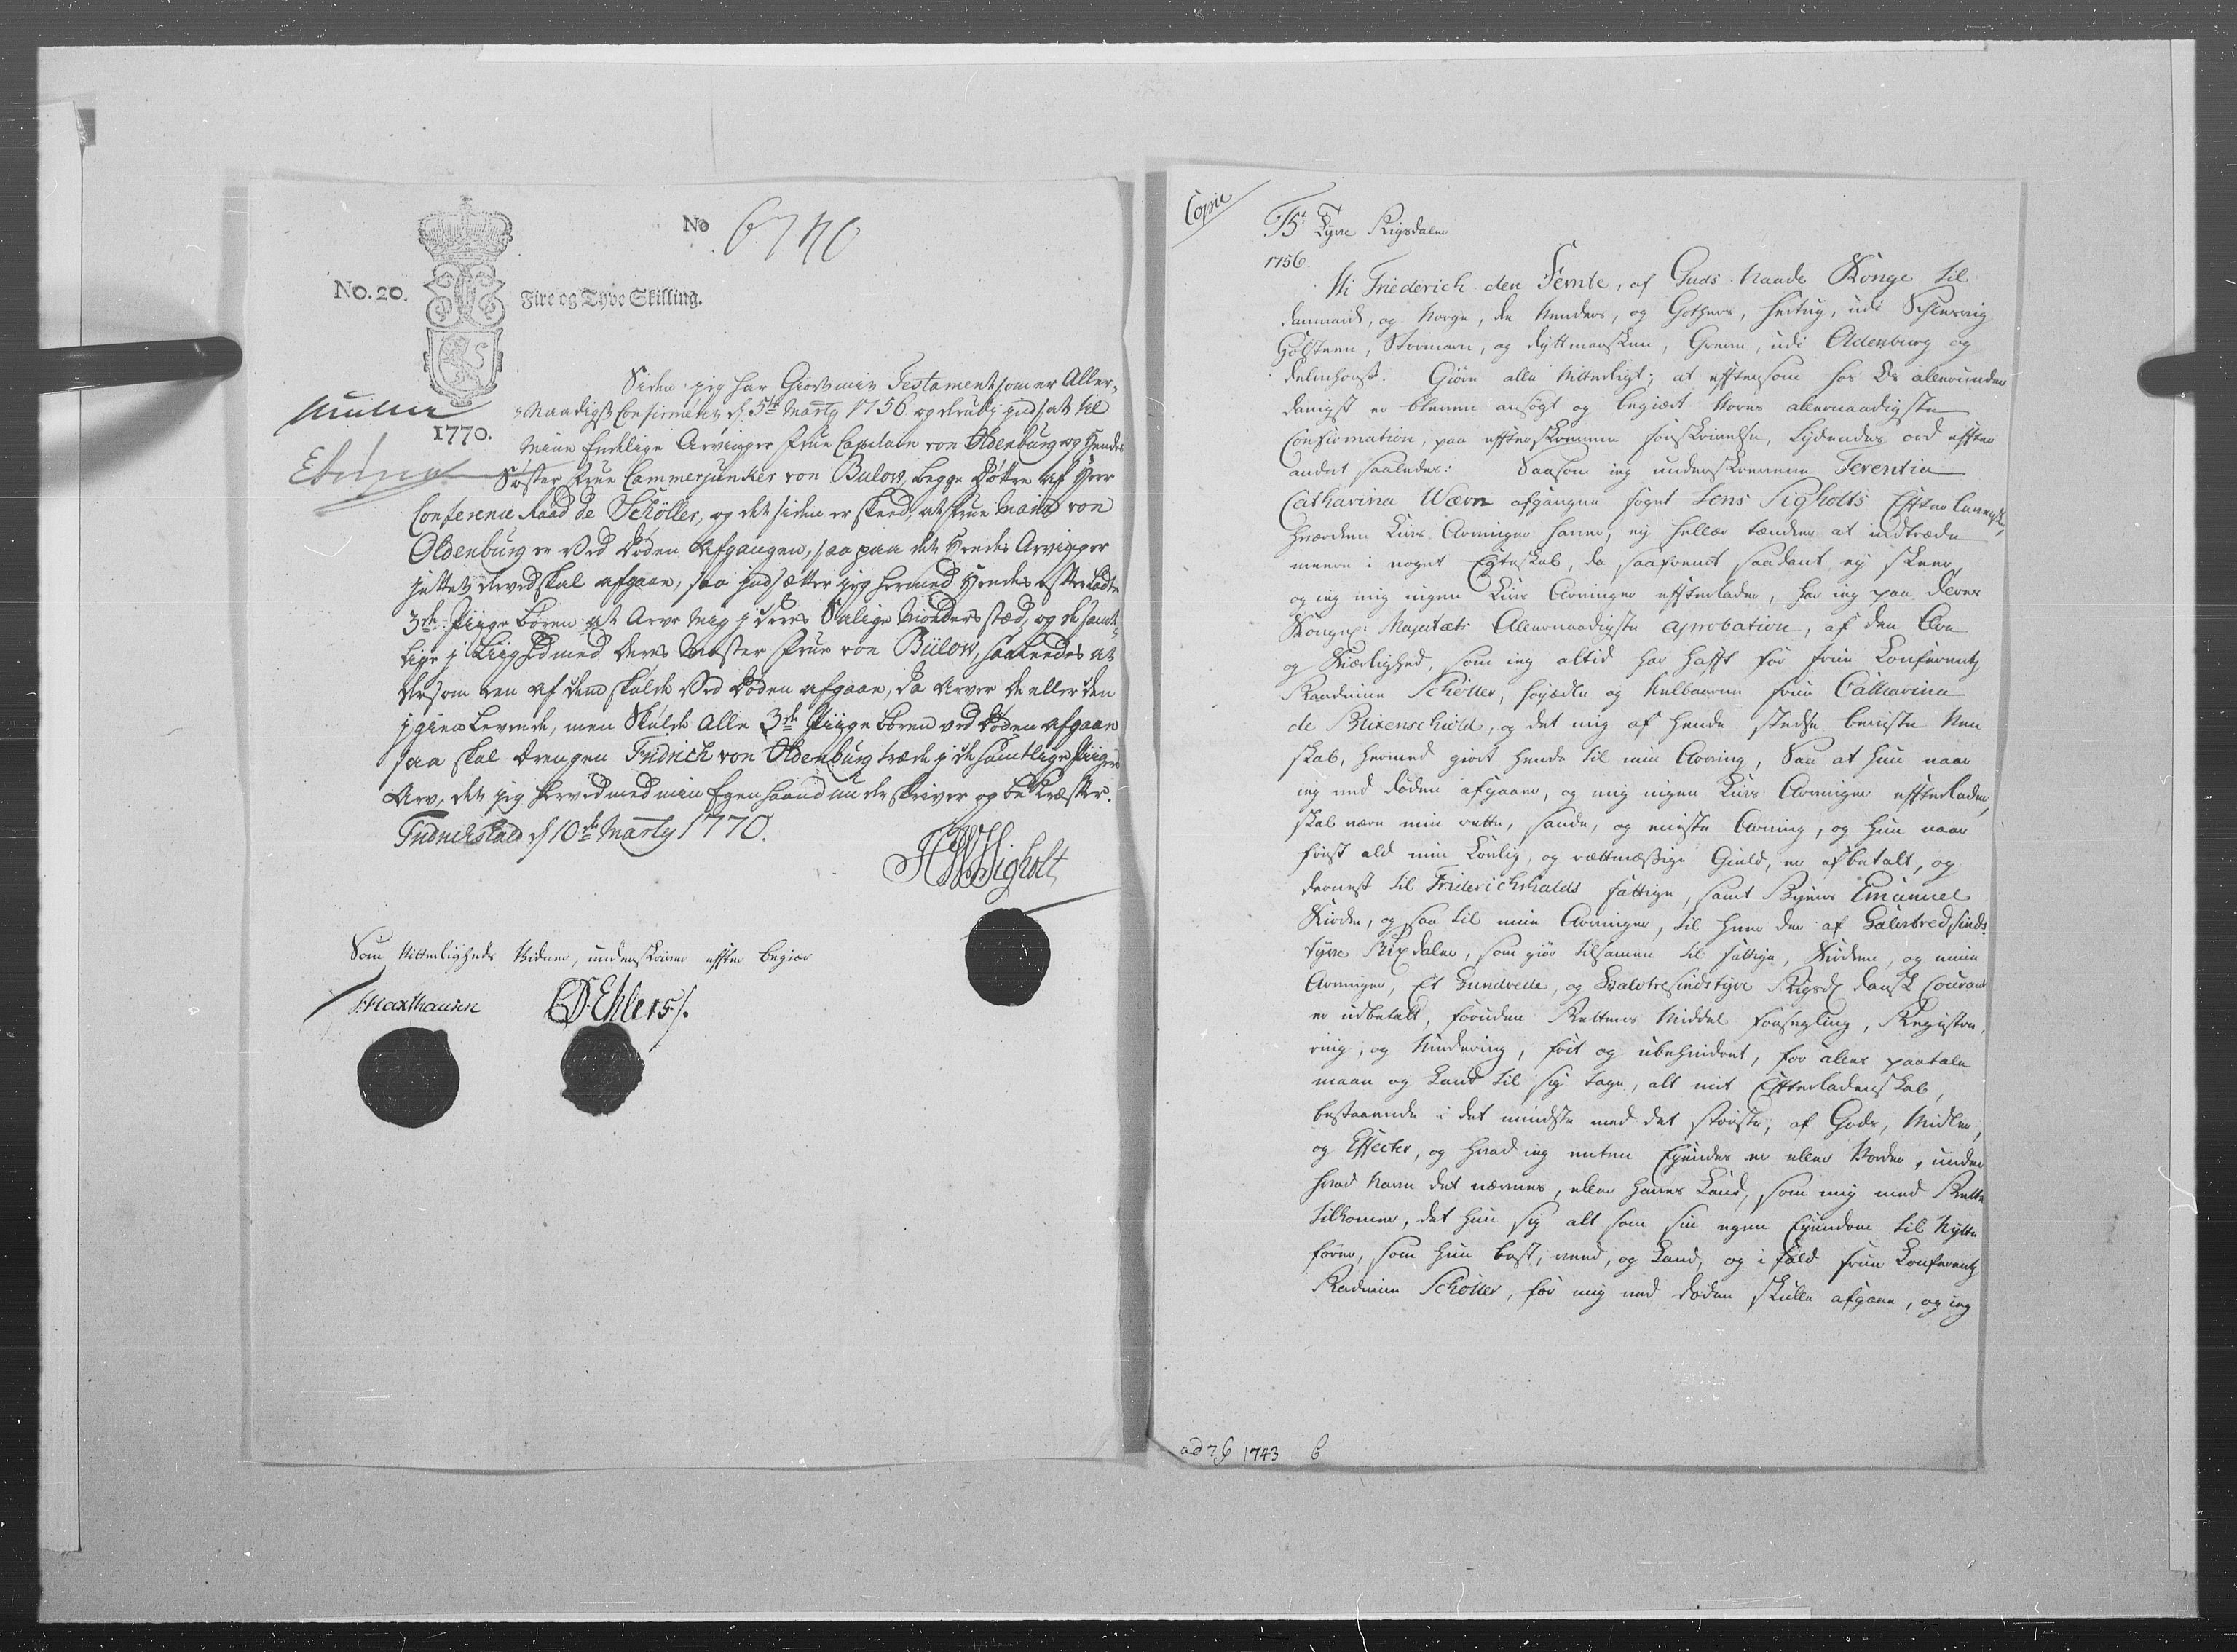 No 6740
No. 20.
Fire og Tyve Skilling.
1770.
Siden jeg har Giort min Testament som er Aller-
Naadigst Confirmeret d 5te Marty 1756 og derudj indsat til
Mine Endelige Arvinger Frue Capitain von Oldenburg og Hendes
Søster Frue Cammerjunker von Bulow, begge Døttre af Herr
Conference Raad de Schøller, og det siden er skeed, at Frue Maria von
Oldenburg er Ved Døden Afgangen, saa paa det Hendes Arvinger
jntet derved skal afgaae, saa jndsætter jeg hermed Hendes efterladte
3de Piige Børen at Arve Mig j deres Salige Moders stæd, og de samt-
lige j Liighed med deres Moster Frue von Bülow, saaleedes at
dersom een af dem skulde Ved Døden afgaae, da Arver de eller den
jgien Levende, men Skulde Alle 3de Piige Børen ved Døden afgaae
saa skal Drengen Fridrich von Oldenburg træde j de samtlige Piigers
Arv, det jeg herved med min Egen haand under skriver og bekræfter.
Fridrichshald d 10de Marty 1770.
Sigholt
Som Vitterligheds Vidner, underskriver effter begier
Haxthausen
Ehlers
Copie
Tyve Rigsdaler
1756.
Vi Friederich den Femte, af Guds Naade Konge til
Danmark, og Norge, de Venders, og Gothers, Hertug, udi Schlesvig
Holsteen, Stormarn, og Dyttmarsken, Greve, udi Oldenburg og
Delmhorst. Giøre alle Vitterligt; at effterson hos Os allerunder
danigst er bleven ansøgt og begiert Vores allernaadigste
Confirmation, paa effterskrevne forskrivelse, Lydendes ord effter
andet saaledes: Saasom jeg underskrevne Terentia
Catharina Wærn afgangne Foget Jens Sigholts Effterleverske,
hverchen Livs Arvinger haver, ej heller tencker at indtræde
meere i noget Egteskab, da saafremt saadant ej skeer,
og jeg mig ingen Livs Arvinger effterlader, har jeg paa Deres
Kongel: Majestæts Allernaadigste aprobation, af den Ære
og Kierlighed, som jeg altid har hafft for Frue Conferentz
Raadinne Schøller, høyædle og Velbaarne Frue Catharina
de Blixenschiold, og det mig af hende stedse beviste Ven
skab, hermed giort hende til min Arving, Saa at hun naar
jeg ved Døden afgaaer, og mig ingen Livs Arvinger effterlader,
skal være min rette, sande, og eniste Arving, og hun naar
først ald min Lovlig, og rettmæssige Gield, er afbetalt, og
dernest til Friderichshalds fattige, samt Byens Emanuel
Kirke, og saa til mine Arvinger, til hver der af Halvtredsinds-
tyve Rixdaler, som giør tilsamen til fattige, Kirken, og mine
Arvinger, Et Hundrede, og Halvtresindstyve Rigsd Dansk Courant
er udbetalt, foruden Rettens Middel forsegling, Registre-
ring, og Vurdering, frit og ubehindret, for alles paatale
maae og Kand til sig tage, alt mit Effterladenskab,
bestaaende i det mindste med det største, af Gods, Midler,
og Effecter, og hvad jeg enten Eyendes er eller Vorder, under
hvad Navn det nævnes, eller haves Kand, som mig med Rette
tilkomer, det hun sig alt som sin egen Eyendom til Nytte
fører, som hun best, veed, og Kand, og i fald Frue Conferentz
Radinne Schøller, før mig ved Døden skulle afgaae, og jeg
ad 1743 6